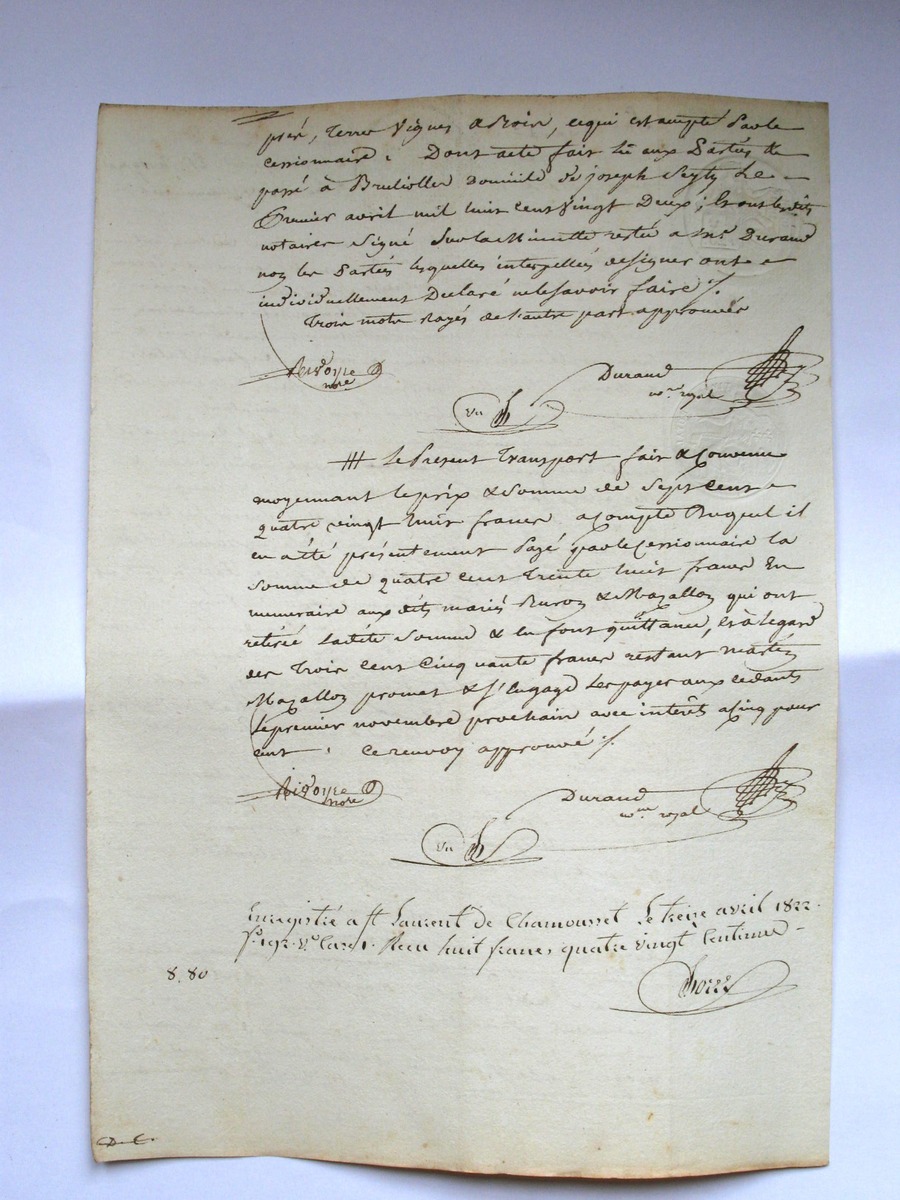 pred, Terres Vignes & Bois, ce qui est accepté par le
cessionnaire. Dont acte fait lu aux Parties &
passé à Brulioller domicile de joseph Seyty Le
Premier avril mil huit cent Vingt Deux ; Et ont lesdits
notaires Signé Sur la Minutte restée a Me. Durand
non les Parties lesquelles interpellées de signer ont
individuellement Declaré ne le savoir faire ./.
Trois mots Rayés de l'autre part approuvés
nore
Durand
nre. royal
Vu
Le Présent Transport fait & Convenu
moyennant le prix & Somme de Sept Cent
quatre vingt huit francs acompte Duquel il
en a été présentement Payé par le Cessionnaire la
Somme de quatre cent Trente huit francs En
numeraire aux dits mariés & Mazallon qui ont
retirée Ladite Somme & en font quittance, Et à legard
des Trois Cent Cinquante francs restant
Mazallon promet & S'Engage Les payer aux cedants
Le premier novembre prochain avec intérêts a cinq pour
cent . Ce renvoy approuvé ./.
nore
Durand
nre. royal
Vu
Enregistré a St. Laurent de Chamousset Le treize avril 1822.
fo. 192. Vo. Case 1. Recu huit francs quatre vingt Centimes
8.80
D. C.